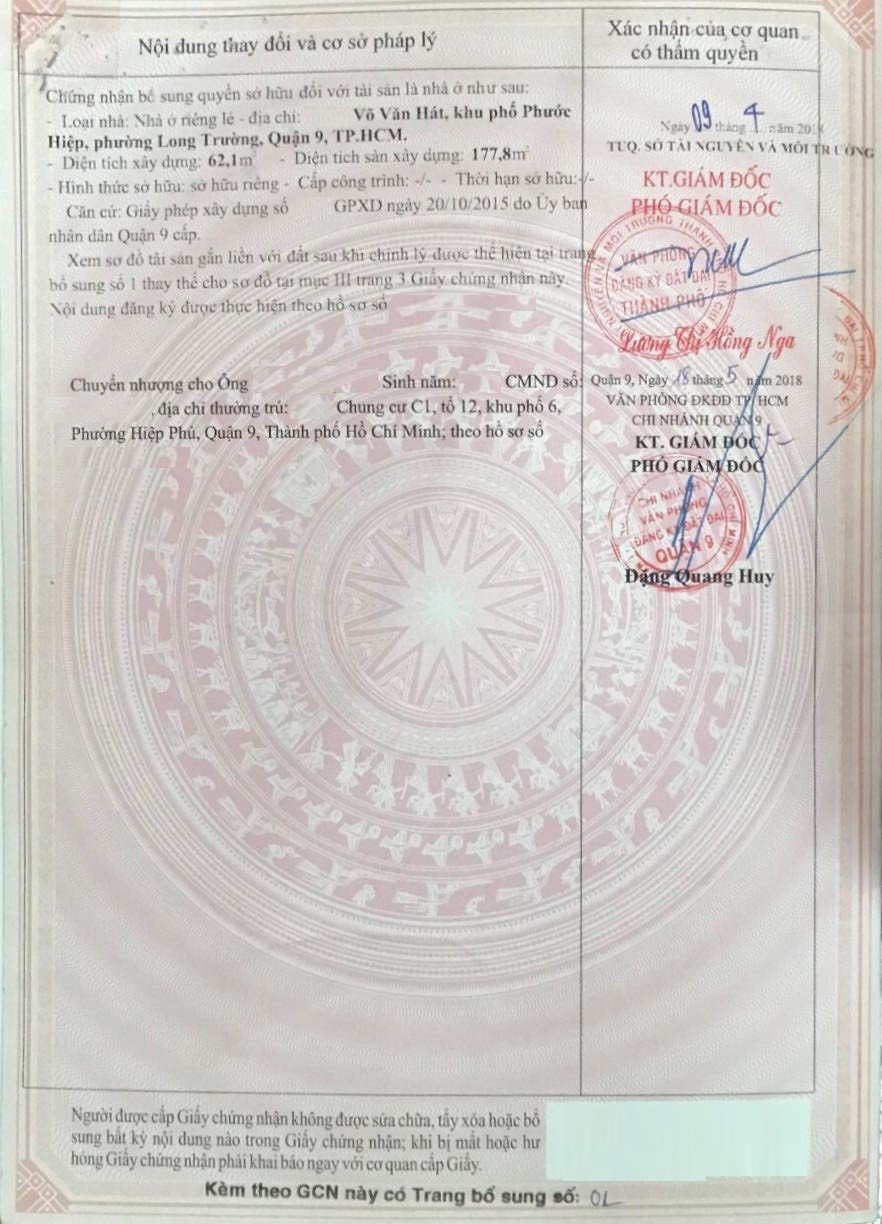 Nội dung thay đổi và cơ sở pháp lý
Xác nhận của cơ quan
có thẩm quyền
Chứng nhận bổ sung quyền sở hữu đối với tài sản là nhà ở như sau:
- Loại nhà: Nhà ở riêng lẻ - địa chỉ: Võ Văn Hát, khu phố Phước
Hiệp, phường Long Trường, Quận 9, TP.HCM.
- Diện tích xây dựng: 62,1m² - Diện tích sàn xây dựng: 177,8m²
- Hình thức sở hữu: sở hữu riêng - Cấp công trình: -/- - Thời hạn sở hữu:-/-
Căn cứ: Giấy phép xây dựng số GPXD ngày 20/10/2015 do Ủy ban
nhân dân Quận 9 cấp.
Xem sơ đồ tài sản gắn liền với đất sau khi chỉnh lý được thể hiện tại trang
bổ sung số 1 thay thế cho sơ đồ tại mục III trang 3 Giấy chứng nhận này.
Nội dung đăng ký được thực hiện theo hồ sơ số
Ngày 09 tháng 4 năm 2018
TUQ. SỞ TÀI NGUYÊN VÀ MÔI TRƯỜNG
KT.GIÁM ĐỐC
PHÓ GIÁM ĐỐC
VĂN PHÒNG
ĐĂNG KÝ ĐẤT ĐAI
THÀNH PHỐ
Lương Thị Hồng Nga
Chuyển nhượng cho Ông Sinh năm: CMND số:
, địa chỉ thường trú: Chung cư C1, tổ 12, khu phố 6,
Phường Hiệp Phú, Quận 9, Thành phố Hồ Chí Minh; theo hồ sơ số
Quận 9, Ngày 18 tháng 5 năm 2018
VĂN PHÒNG ĐKĐĐ TP. HCM
CHI NHÁNH QUẬN 9
KT. GIÁM ĐỐC
PHÓ GIÁM ĐỐC
CHI NHÁNH
VĂN PHÒNG
ĐĂNG KÝ ĐẤT ĐAI
QUẬN 9
Đặng Quang Huy
Người được cấp Giấy chứng nhận không được sửa chữa, tẩy xóa hoặc bổ
sung bất kỳ nội dung nào trong Giấy chứng nhận; khi bị mất hoặc hư
hỏng Giấy chứng nhận phải khai báo ngay với cơ quan cấp Giấy.
Kèm theo GCN này có Trang bổ sung số: 01